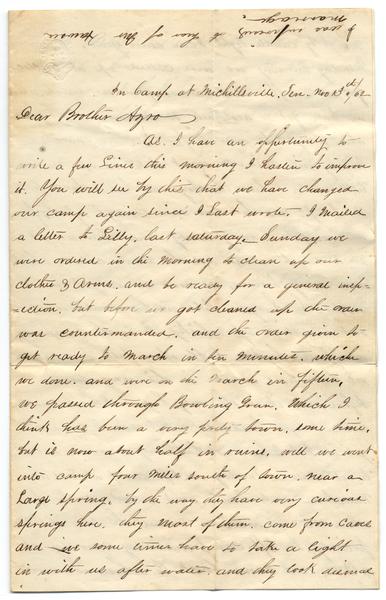 I was surprised to hear of Mr
marriage.
In Camp at Michillsville, Ten. Nov 13th/62
Dear Brother Azro
As. I have an opportunity to
write a few lines this morning I hasten to improve
it. You will see by this that we have changed
our camp again since I last wrote. I mailed
a letter to Lilly. last saturday. Sunday we
were ordered in the morning to clean up our
clothes & Arms. and be ready for a general insp-
-ection. but before we got cleaned up the order
was countermanded. and the order given to
get ready to March in ten minutes. which
we done. and were on the March in fifteen.
we passed through Bowling Green. Which I
think has been a very prety town. some time.
but is now about half in ruins. well we went
into camp four miles south of town. near a
Large spring. by the way they have very curious
springs here. they most of them. come from Caves
and we some times have to take a light
in with us after water. and they look dismal